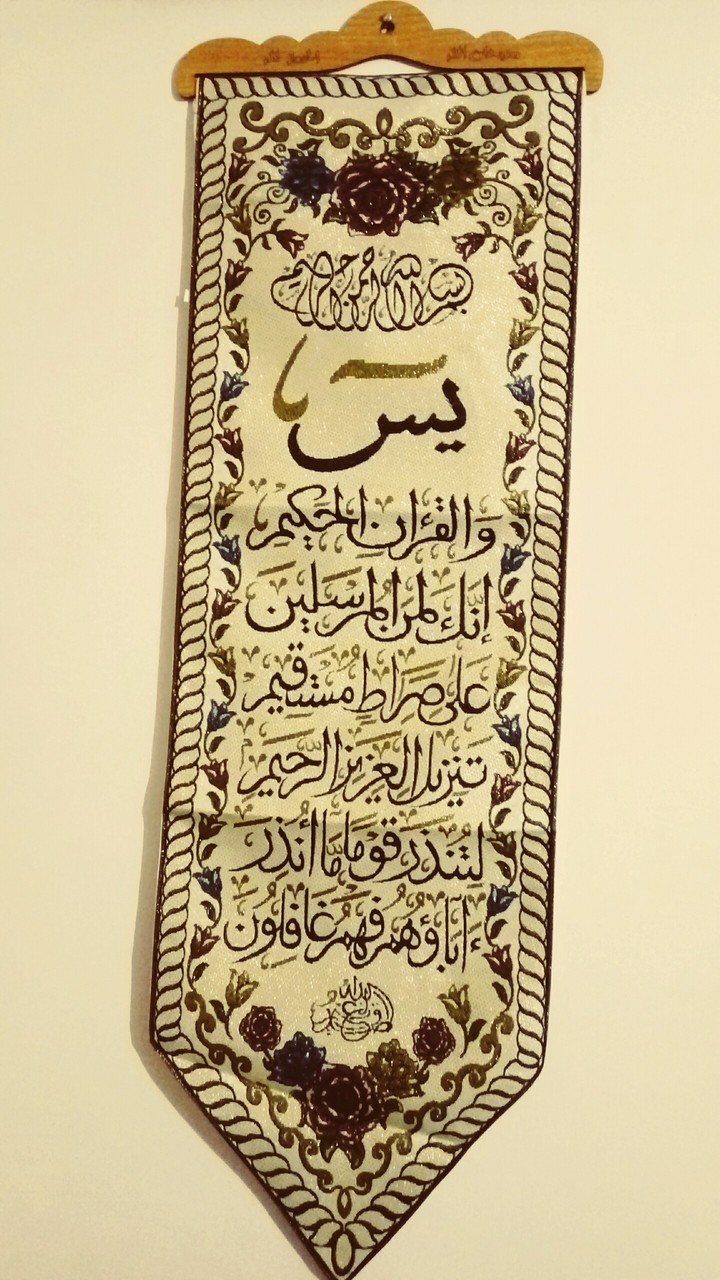 بسم الله الرحمن الرحيم
يٓس
وَالْقُرْآنِ الْحَكِيمِ
إِنَّكَ لَمِنَ الْمُرْسَلِينَ
عَلَىٰ صِرَاطٍ مُسْتَقِيمٍ
تَنْزِيلَ الْعَزِيزِ الرَّحِيمِ
لِتُنْذِرَ قَوْمًا مَّا أُنْذِرَ
ءَابَاؤُهُمْ فَهُمْ غَافِلُونَ
صدق الله العظيم